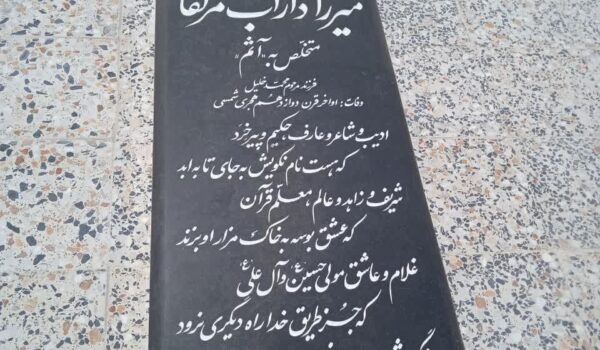 میرزا داراب مرلقا
متخلّص به "آثم"
فرزند مرحوم محمّد خلیل
وفات: اواخر قرن دوازدهم هجری شمسی
ادیب و شاعر و عارف حکیم و پیر خرَد
که هست نام نکویش به جای تا به ابد
شریف و زاهد و عالم معلّم قرآن
که عشق بوسه به خاک مزار او بزند
غلام و عاشق مولی حسین(ع) و آل علی(ع)
که جز طریق خدا راه دیگری نرود